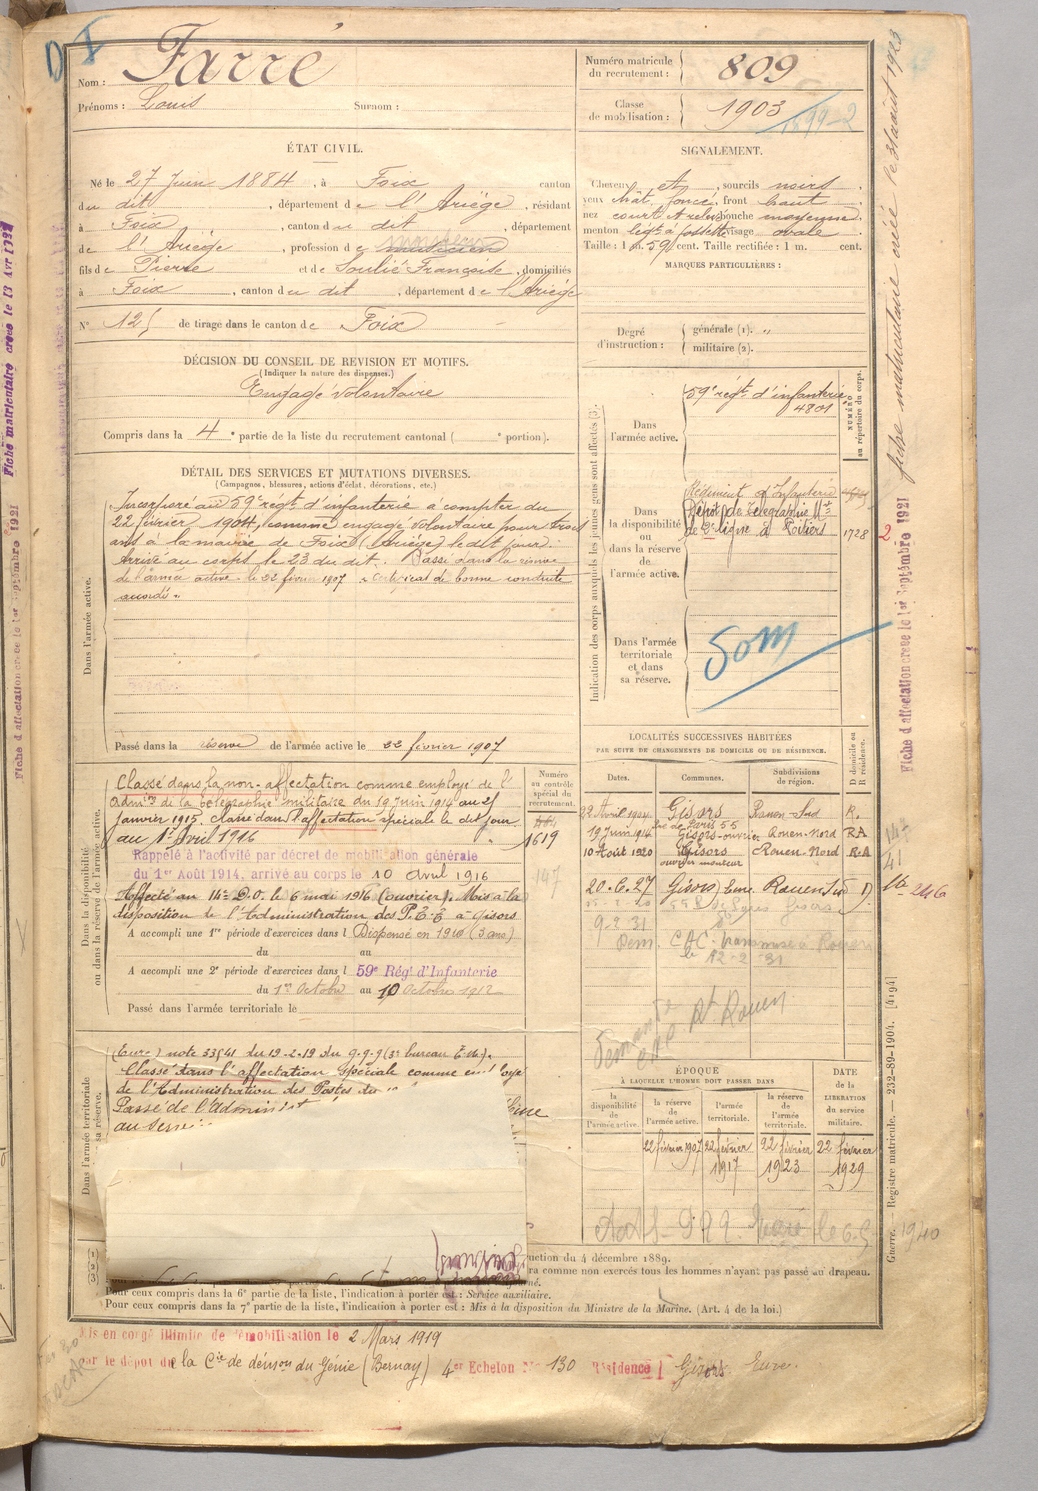 D I
Nom : Farré
Prénoms : Louis Surnom :
Numéro matricule du recrutement : 809
Classe de mobilisation : 1903 1899-2
ÉTAT CIVIL.
Né le 27 Juin 1884, à Foix canton
du dit, département de l'Ariège, résidant
à Foix, canton du dit, département
de l'Ariège, profession de musicien
fils de Pierre et de Soulié Françoise, domiciliés
à Foix, canton du dit, département de l'Ariège
N° 125 de tirage dans le canton de Foix
SIGNALEMENT.
Cheveux et, sourcils noirs
yeux chât. foncé, front haut
nez court et relevé bouche moyenne
menton à fossette visage ovale
Taille : 1 m. 59 cent. Taille rectifiée : 1 m. cent.
MARQUES PARTICULIÈRES :
Degré d'instruction : générale (1). "
militaire (2).
DÉCISION DU CONSEIL DE REVISION ET MOTIFS.
(Indiquer la nature des dispenses.)
Engagé volontaire
Compris dans la 4e partie de la liste du recrutement cantonal ( e portion).
DÉTAIL DES SERVICES ET MUTATIONS DIVERSES.
(Campagnes, blessures, actions d'éclat, décorations, etc.)
Dans l'armée active.
Incorporé au 59e régt d'infanterie à compter du
22 février 1904, comme engagé volontaire pour trois
ans à la mairie de Foix (Ariège) le dit jour.
Arrivé au corps le 23 du dit. Passé dans la réserve
de l'armée active le 22 février 1907 "Certificat de bonne conduite
accordé"
Passé dans la réserve de l'armée active le 22 février 1907
Indication des corps auxquels les jeunes gens sont affectés (3).
NUMÉRO au répertoire du corps.
Dans l'armée active. 59e régt d'infanterie 4801
Dans la disponibilité ou dans la réserve de l'armée active.
Régiment d'Infanterie
Dépôt de Télégraphie Mre
de 2e ligne à Poitiers 1728
Dans l'armée territoriale et dans sa réserve.
Som
LOCALITÉS SUCCESSIVES HABITÉES
PAR SUITE DE CHANGEMENTS DE DOMICILE OU DE RÉSIDENCE.
Dates. Communes. Subdivisions de région. D domicile ou R résidence.
22 Avril 1904 Gisors Rouen-Sud R.
rue de Paris 55
19 Juin 1914 Gisors-ouvrier Rouen-Nord RA
10 Août 1920 Gisors Rouen-Nord R.A
ouvrier monteur
20.6.27 Gisors Eure Rouen Sud D
9-2-31
Dem. CAC transmise à Rouen
le 12-2-31
demande CAC Rt Rouen
Dans la disponibilité ou dans la réserve de l'armée active.
Numéro au contrôle spécial du recrutement.
1619
147
Classé dans la non-affectation comme employé de l'
Admon de la télégraphie militaire du 19 Juin 1914 au 25
Janvier 1915. Classé dans l'affectation spéciale le dit jour
au 1er Avril 1916
Rappelé à l'activité par décret de mobilisation générale
du 1er Août 1914, arrivé au corps le 10 Avril 1916
Affecté au 14e D.O. le 6 mai 1916 (ouvrier). Mis à la
disposition de l'Administration des P.T.T. à Gisors
A accompli une 1re période d'exercices dans l Dispensé en 1910 (3 ans)
du au
A accompli une 2e période d'exercices dans l 59e Régt d'Infanterie
du 1er Octobre au 10 Octobre 1912
Passé dans l'armée territoriale le
Dans l'armée territoriale et dans sa réserve.
(Eure) note 33541 du 19-2-19 du G.Q.G (3e bureau T.M.).
Classé dans l'affectation spéciale comme employé
de l'Administration des Postes du
Passé de l'Administ
au
ÉPOQUE
À LAQUELLE L'HOMME DOIT PASSER DANS
la disponibilité de l'armée active. la réserve de l'armée active. l'armée territoriale. la réserve de l'armée territoriale.
DATE de la LIBÉRATION du service militaire.
22 février 1907 22 février 1917 22 février 1923 22 février 1929
(1)
(2)
(3)
uction du 4 décembre 1889.
ra comme non exercés tous les hommes n'ayant pas passé au drapeau.
Pour ceux compris dans la 6e partie de la liste, l'indication à porter est : Service auxiliaire.
Pour ceux compris dans la 7e partie de la liste, l'indication à porter est : Mis à la disposition du Ministre de la Marine. (Art. 4 de la loi.)
Mis en congé illimité de démobilisation le 2 Mars 1919
par le dépôt de la Cie de du Génie (Bernay) 4er Echelon N° 130 Résidence Gisors Eure.
fiche matriculaire créé le 31 août 1923
Fiche d'affectation creee le 1er Septembre 1921
2
Guerre. — Registre matricule. — 232-89-1904. [4194]
1940
Fiche matriculaire creee le 13 Avr
Fiche d'affectation creee le 1er Septembre 1921